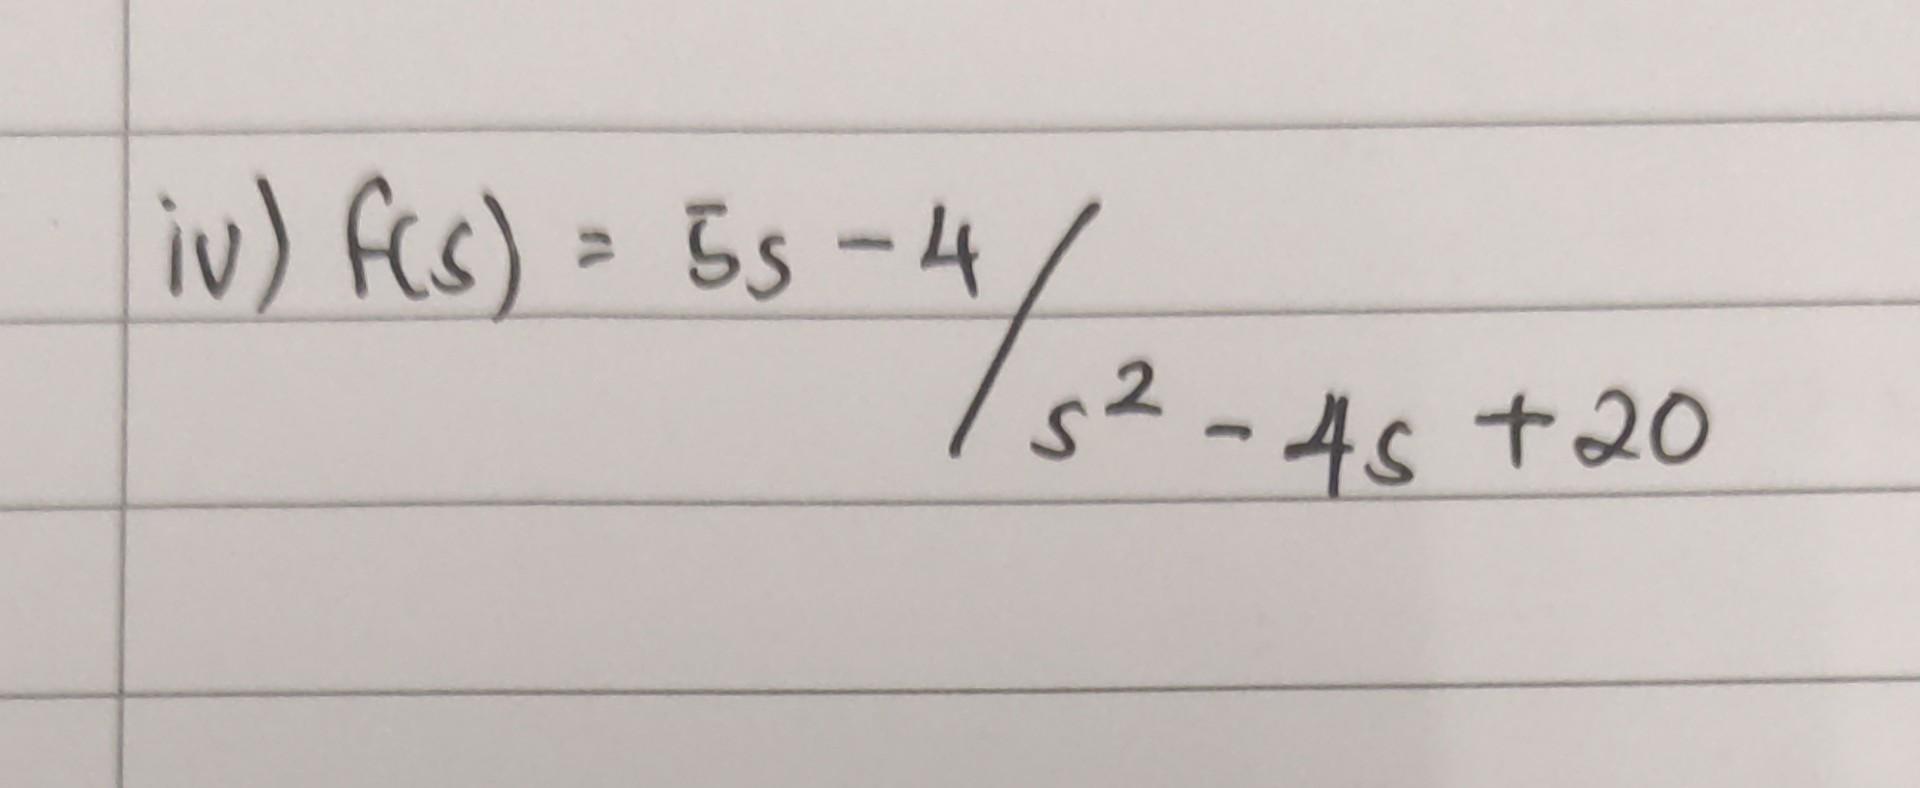 iv) f(s) = 5s - 4 /
s² - 4s + 20